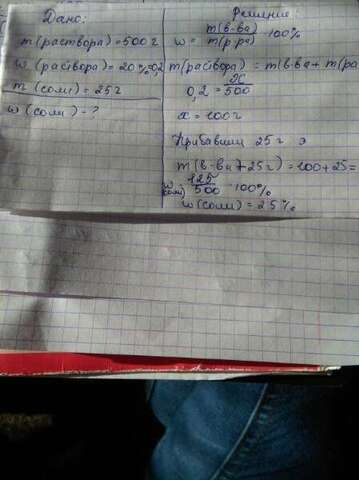 Дано:
m(раствора)=500г
w(раствора)=20%=0,2
m(соли)=25г
w(соли)-?
Решение:
w = m(в-ва)/m(р-ра) · 100%
m(раствора) = m в-ва + m(ра
0,2 = x/500
x = 100г
Прибавим 25г э
m(в-ва+25г)=100+25=
w(соли) 125/500 · 100%
w(соли) = 25%